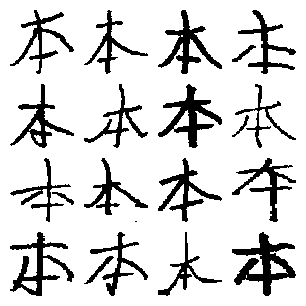 本 本 本 本
本 本 本 本
本 本 本 本
本 本 本 本